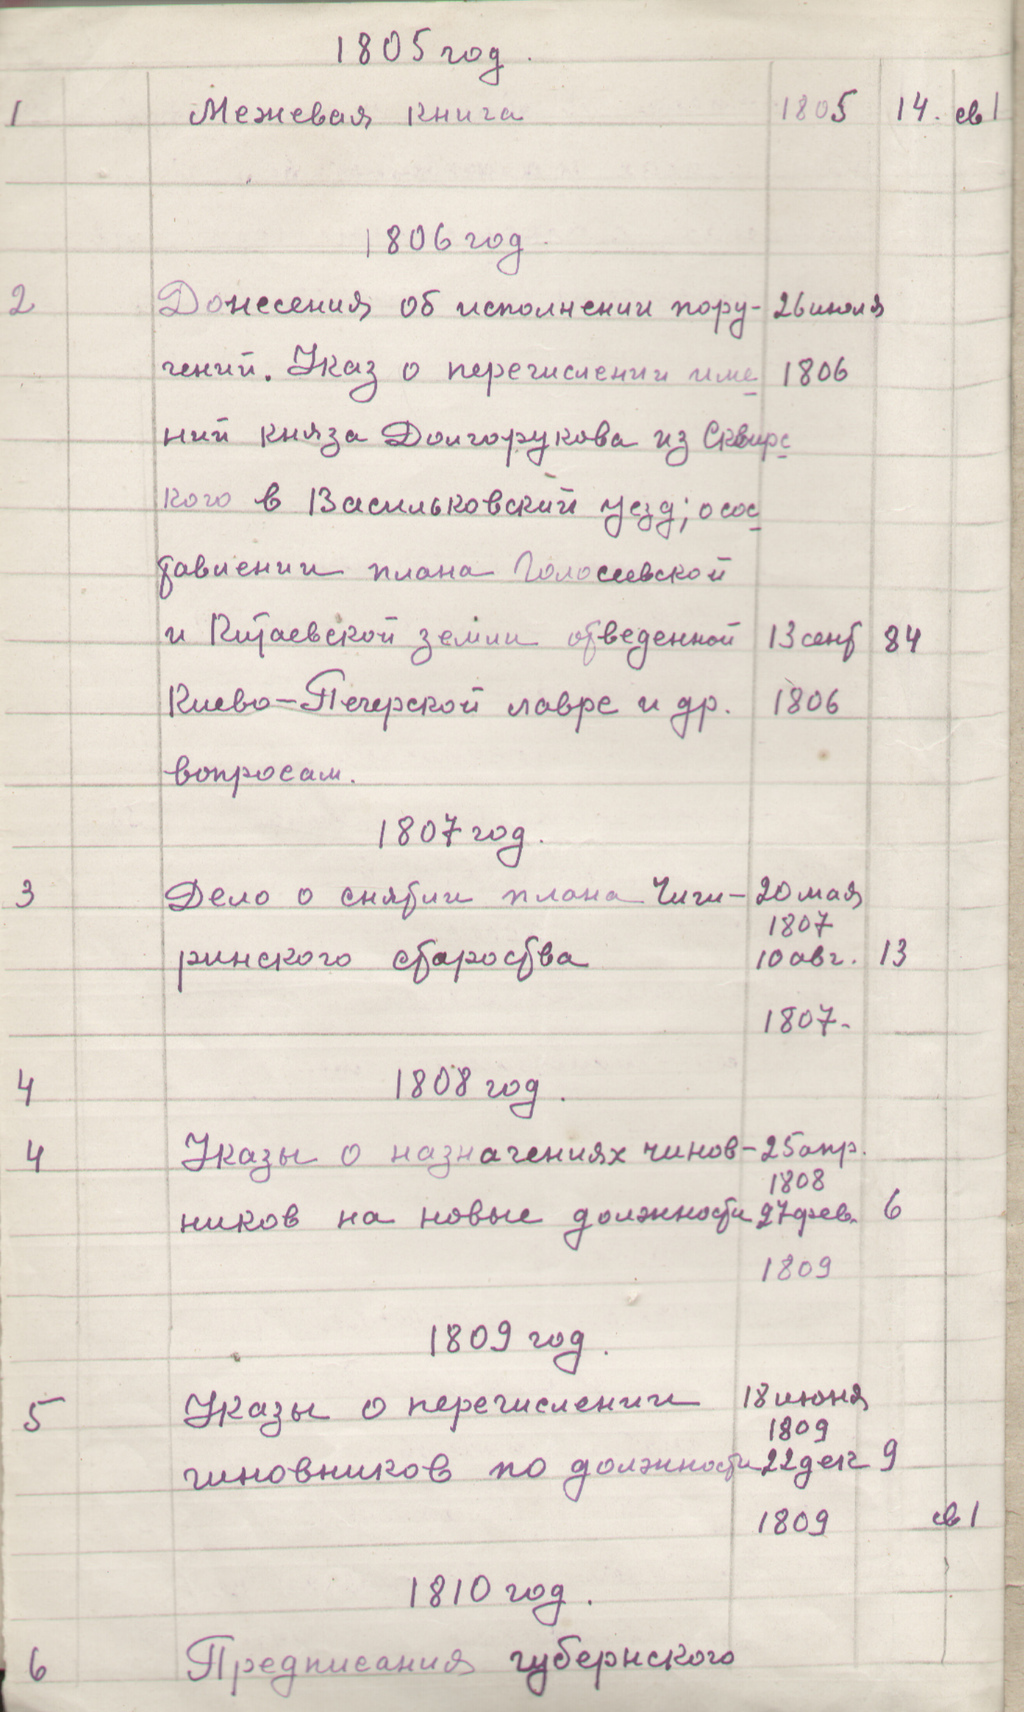 1805 год.
1 Межевая книга 1805 14. св 1
1806 год.
2 Донесения об исполнении пору- 26 июля
чений. Указ о перечислении име 1806
ний княза Долгорукова из Сквирс
кого в Васильковский уезд; о сос
тавлении плана Голосеевской
и Китаевской земли отведенной 13 сент 84
Киево-Печерской лавре и др. 1806
вопросам.
1807 год.
3 Дело о снятии плана Чиги- 20 мая
1807
ринского староства 10 авг. 13
1807.
4 1808 год.
4 Указы о назначениях чинов- 25 апр.
1808
ников на новые должности 27 фев. 6
1809
1809 год.
5 Указы о перечислении 18 июня
1809
чиновников по должности 22 дек 9
1809 св 1
1810 год.
6 Предписания губернского